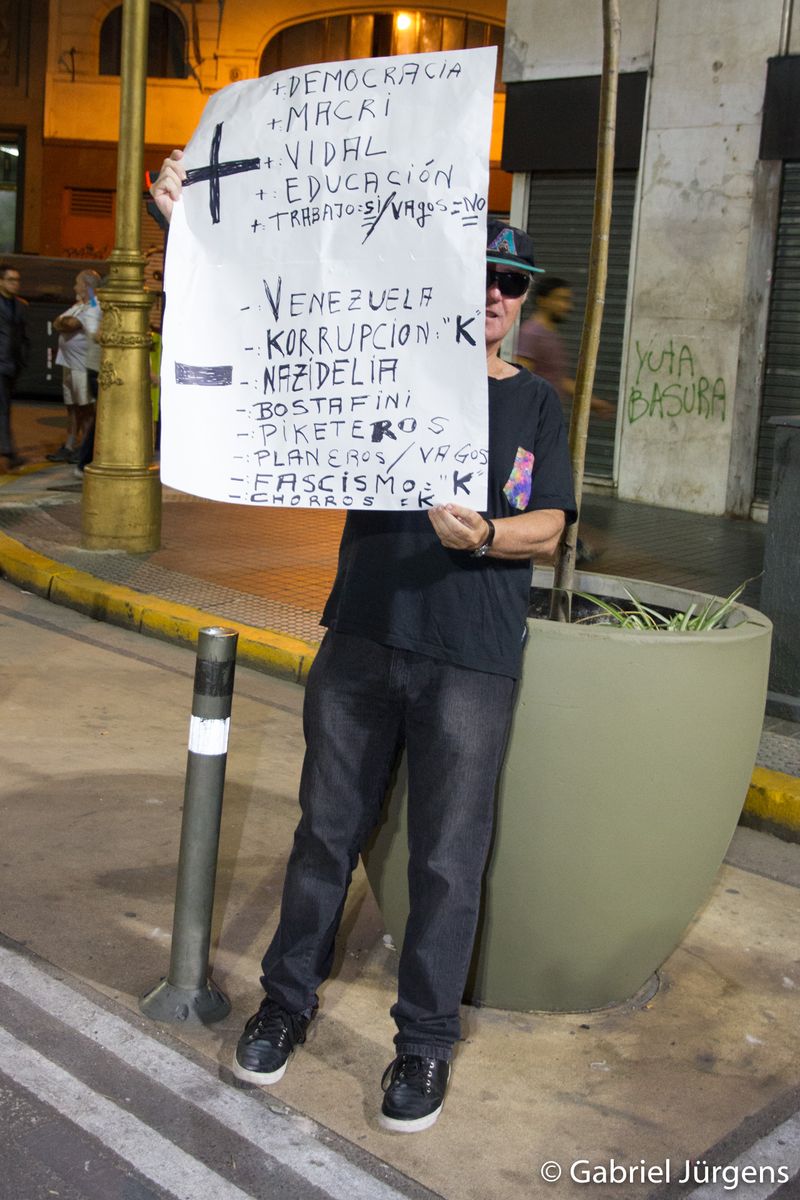 +: DEMOCRACIA
+: MACRI
+: VIDAL
+: EDUCACIÓN
+: TRABAJO: Si/VAgOS = NO
-: VENEZUELA
-: KORRUPCION: "K"
-: NAZIDELIA
-: BOSTAFINI
-: PIKETEROS
-: PLANEROS/VAGOS
-: FASCISMO: "K"
-: CHORROS = K
YUTA
BASURA
© Gabriel Jürgens